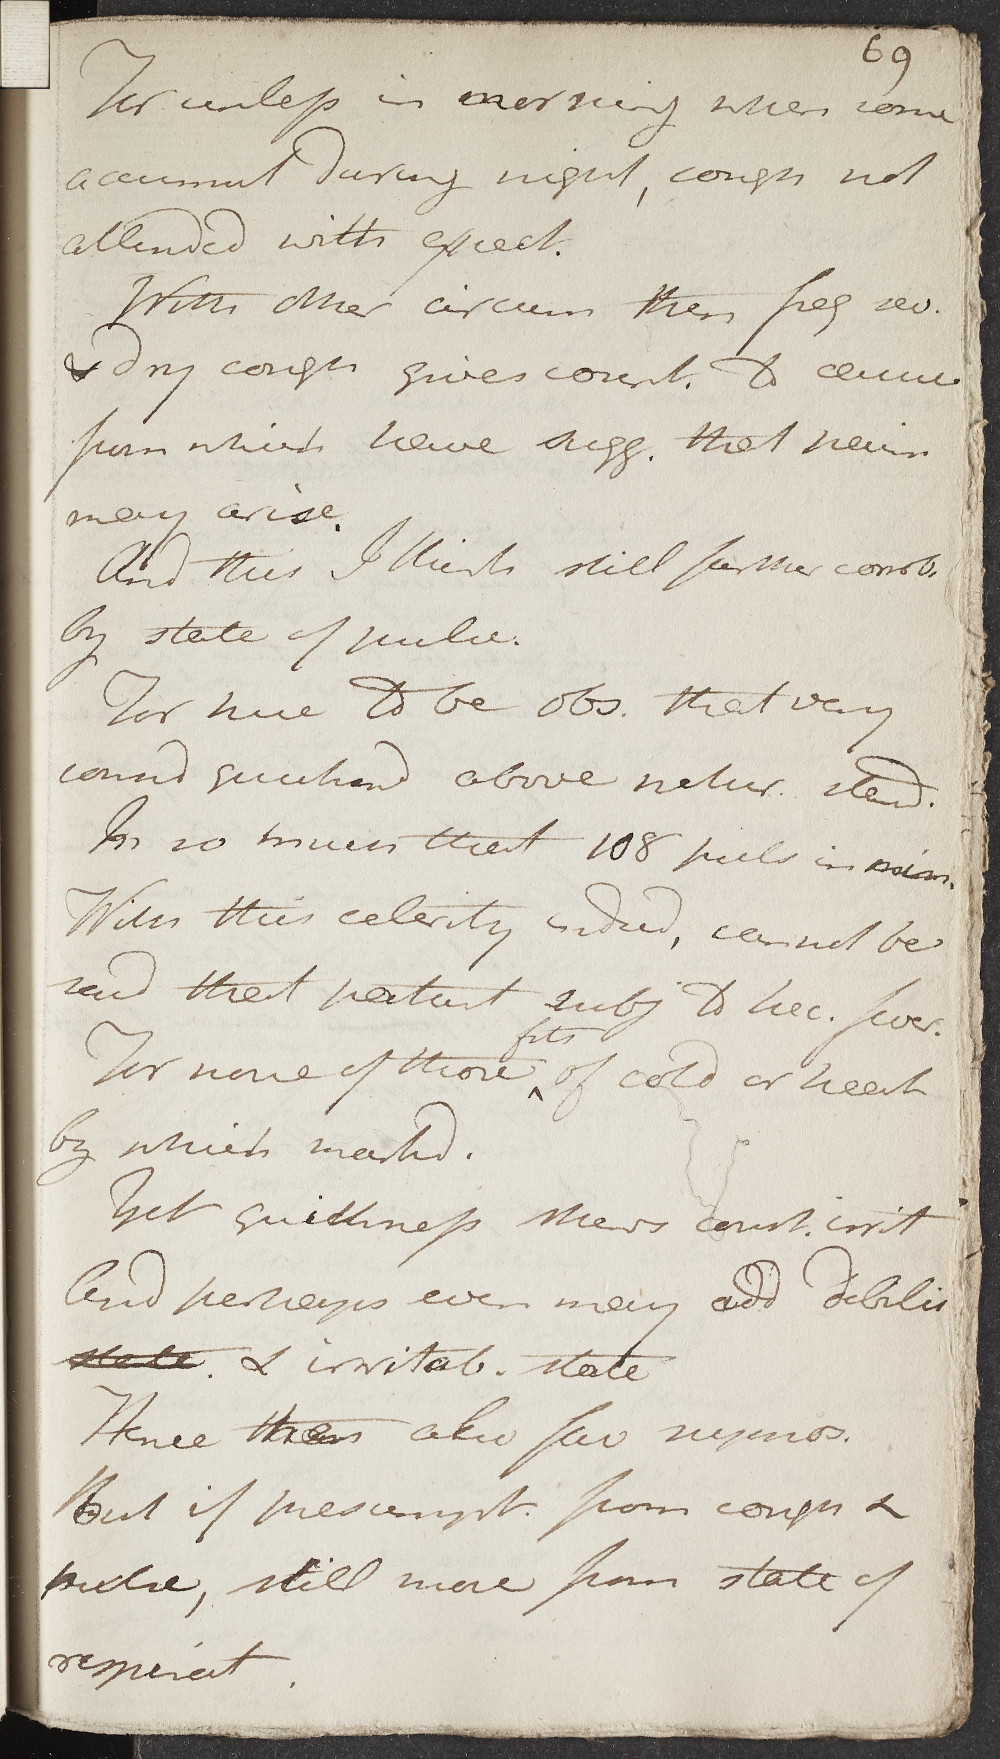 69
For unless in morning when some
accumul during night, cough not
attended with expect.
With other circum then freq rec.
& dry cough gives count. to
from which have sugg. that
may arise.
And this I think still further corrob.
by state of pulse.
For here to be obs. that very
consid quickend above natur. stand.
In so much that 108 puls in min.
With this celerity indeed, cannot be
said that patient subj to hec. fever.
For none of those fits of cold or heat
by which markd.
Yet quickness shews const. irrit
And perhaps even may add debilit
state. & irritab. state
Hence then also fav suppos.
But if presumpt. from cough &
pulse, still more from state of
respirat.